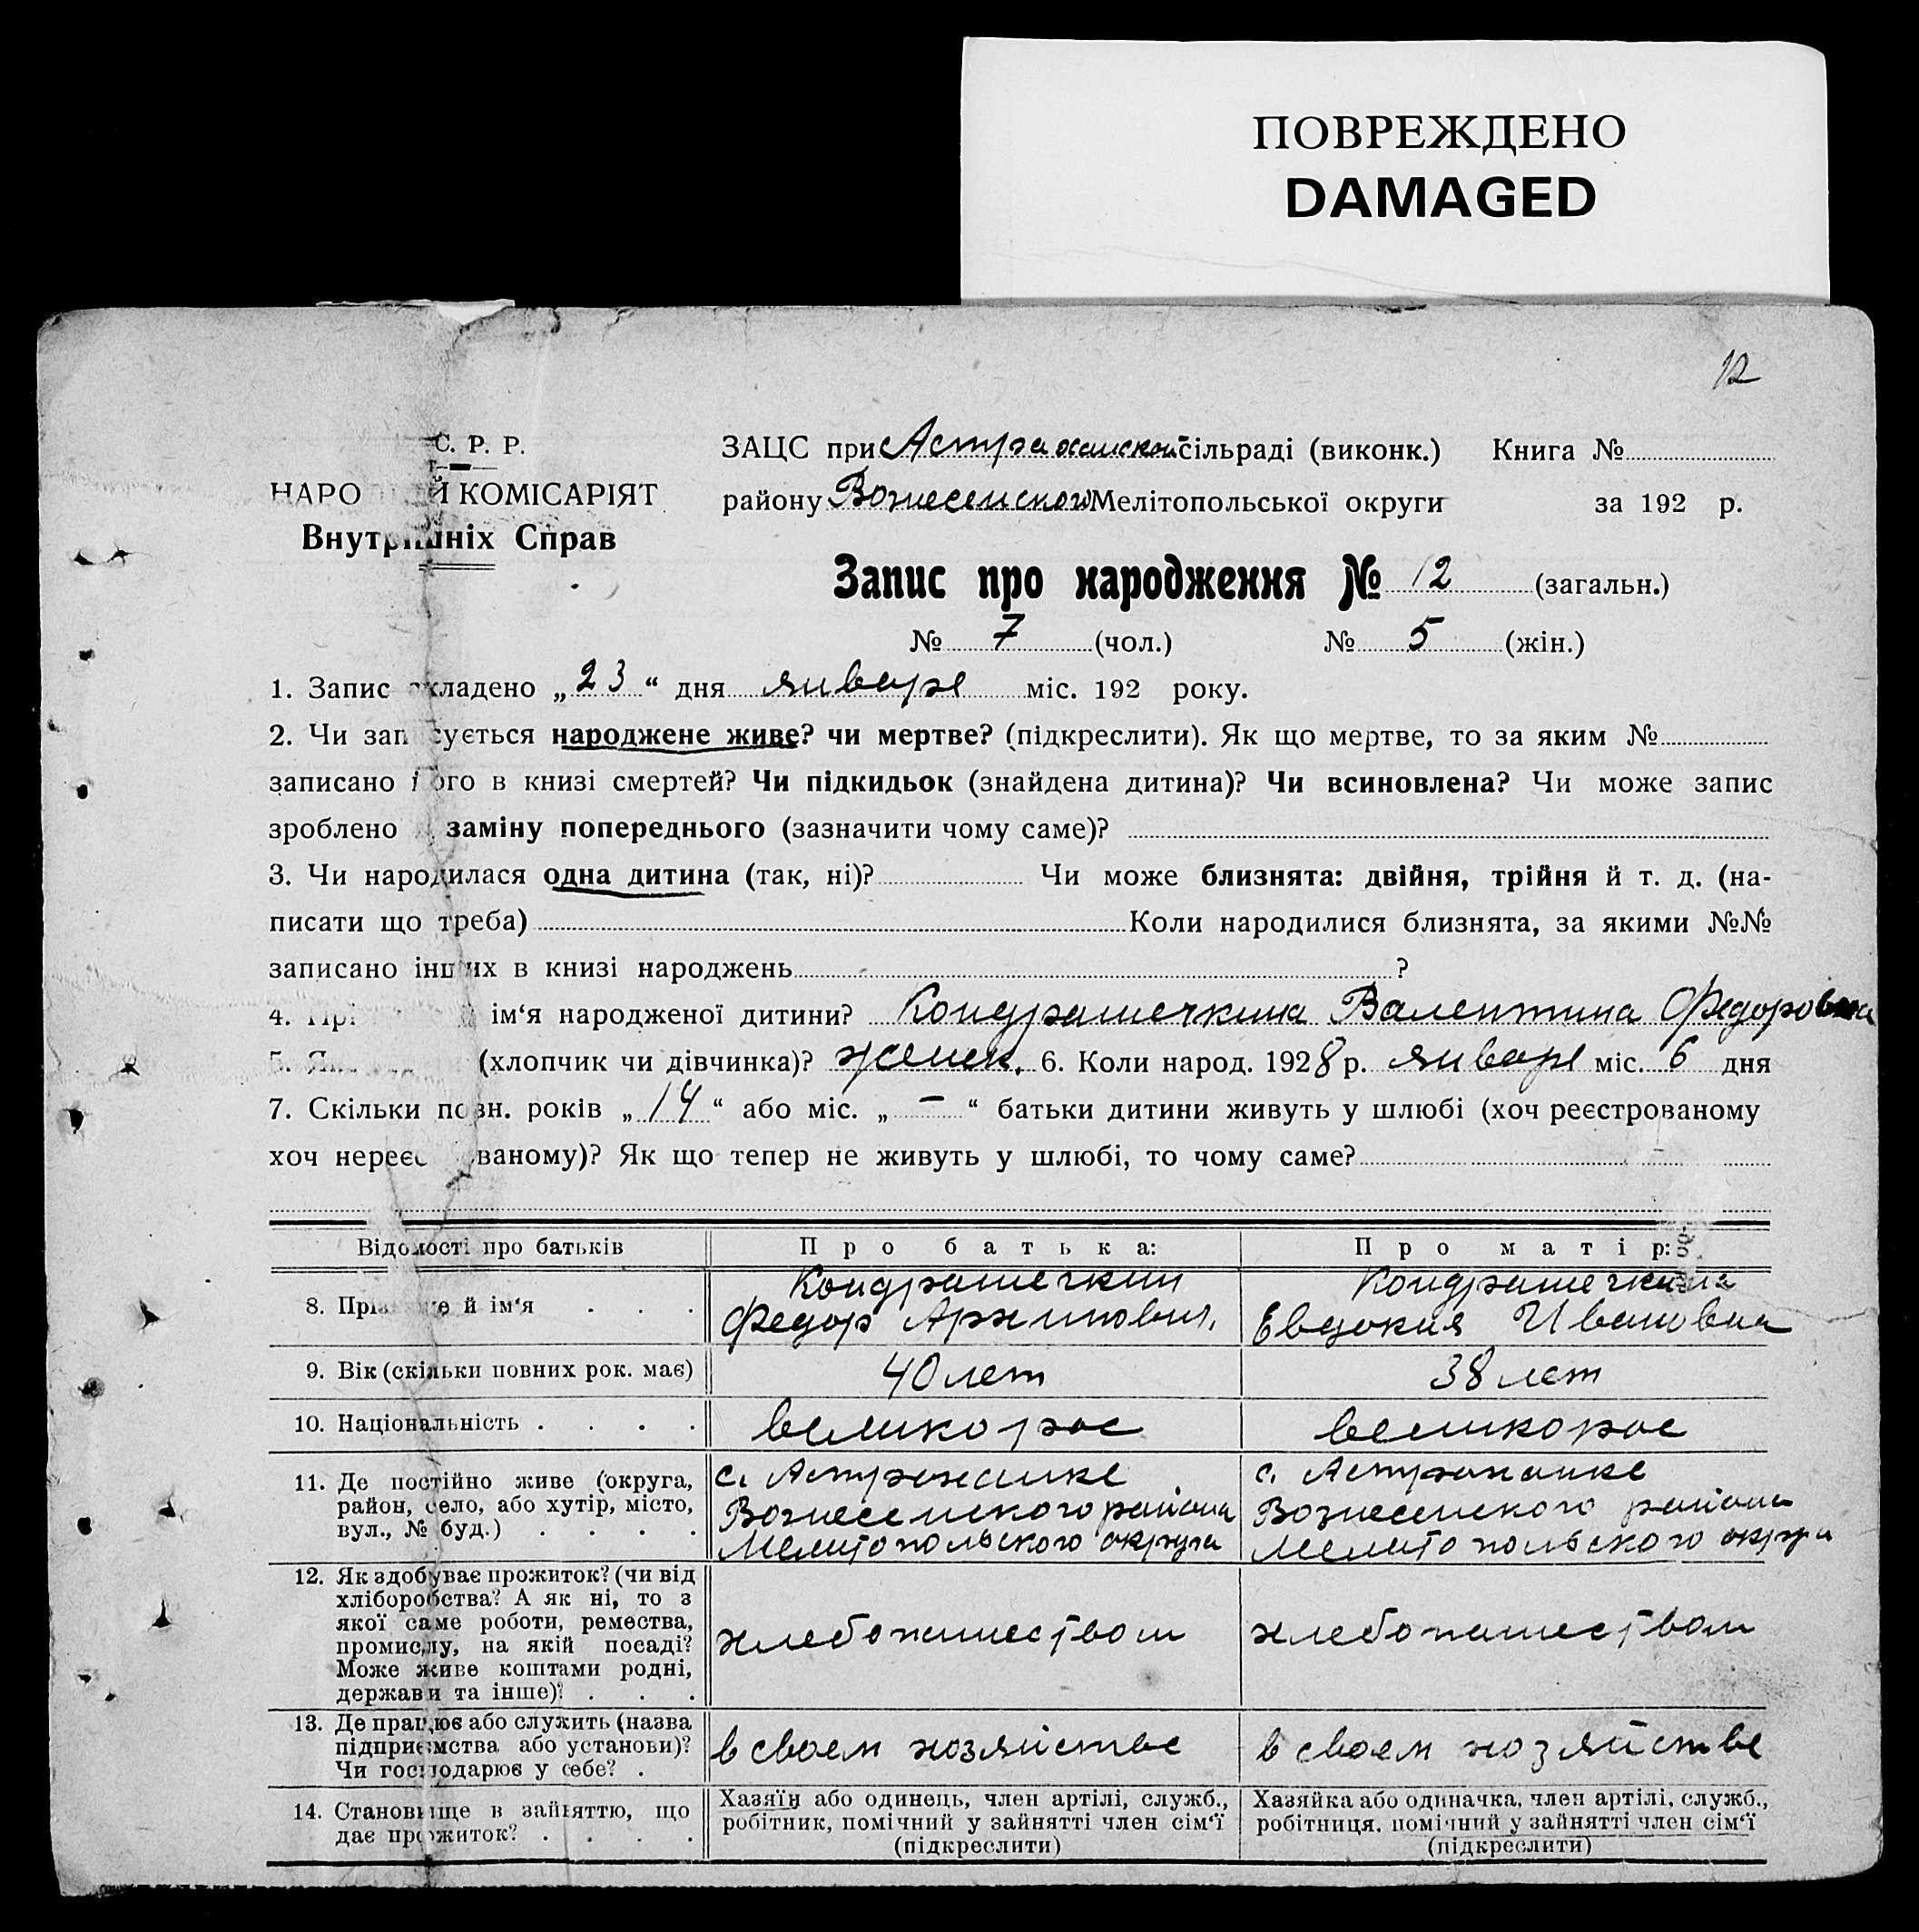 ПОВРЕЖДЕНО
DAMAGED
12
С. Р. Р.
НАРО Й КОМІСАРІЯТ
Внутрішніх Справ
ЗАЦС при Астраханской сільраді (виконк.) Книга №
району Вознесенского Мелітопольської округи за 192 р.
Запис про народження № 12 (загальн.)
№ 7 (чол.) № 5 (жін.)
1. Запис складено „23“ дня января міс. 192 року.
2. Чи записується народжене живе? чи мертве? (підкреслити). Як що мертве, то за яким №
записано його в книзі смертей? Чи підкидьок (знайдена дитина)? Чи всиновлена? Чи може запис
зроблено заміну попереднього (зазначити чому саме)?
3. Чи народилася одна дитина (так, ні)? Чи може близнята: двійня, трійня й т. д. (на-
писати що треба) Коли народилися близнята, за якими №№
записано інших в книзі народжень ?
4. Прі ім‘я народженої дитини? Кондрашечкина Валентина Федоровна
5. Як (хлопчик чи дівчинка)? женск. 6. Коли народ. 1928 р. января міс. 6 дня
7. Скільки повн. років „14“ або міс. „–“ батьки дитини живуть у шлюбі (хоч реєстрованому
хоч нереє ваному)? Як що тепер не живуть у шлюбі, то чому саме? –
Відомості про батьків Про батька: Про матір:
8. Прізвище й ім‘я . . . Кондрашечкин Кондрашечкина
Федор Архипович. Евдокия Ивановна
9. Вік (скільки повних рок. має) 40 лет 38 лет
10. Національність . . . . великорос великорос
11. Де постійно живе (округа, с. Астраханке с. Астраханке
район, село, або хутір, місто, Вознесенского района Вознесенского района
вул., № буд.) . . . . Мелитопольского округа Мелитопольского округа
12. Як здобуває прожиток? (чи від
хліборобства? А як ні, то з
якої саме роботи, ремества,
промислу, на якій посаді? хлебопашеством хлебопашеством
Може живе коштами родні,
держави та інше)? . . .
13. Де працює або служить (назва
підприємства або установи)? в своем хозяйстве в своем хозяйстве
Чи господарює у себе? .
14. Становище в зайняттю, що Хазяїн або одинець, член артілі, служб., Хазяйка або одиначка, член артілі, служб.,
дає прожиток? . . . . робітник, помічний у зайнятті член сім‘ї робітниця, помічний у зайнятті член сім‘ї
(підкреслити) (підкреслити)